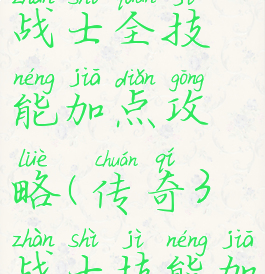 zhàn shì quán jì
战士全技
néng jiā diǎn gōng
能加点攻
lüè chuán qí
略(传奇3
zhàn shì jì néng jiā
战士技能加